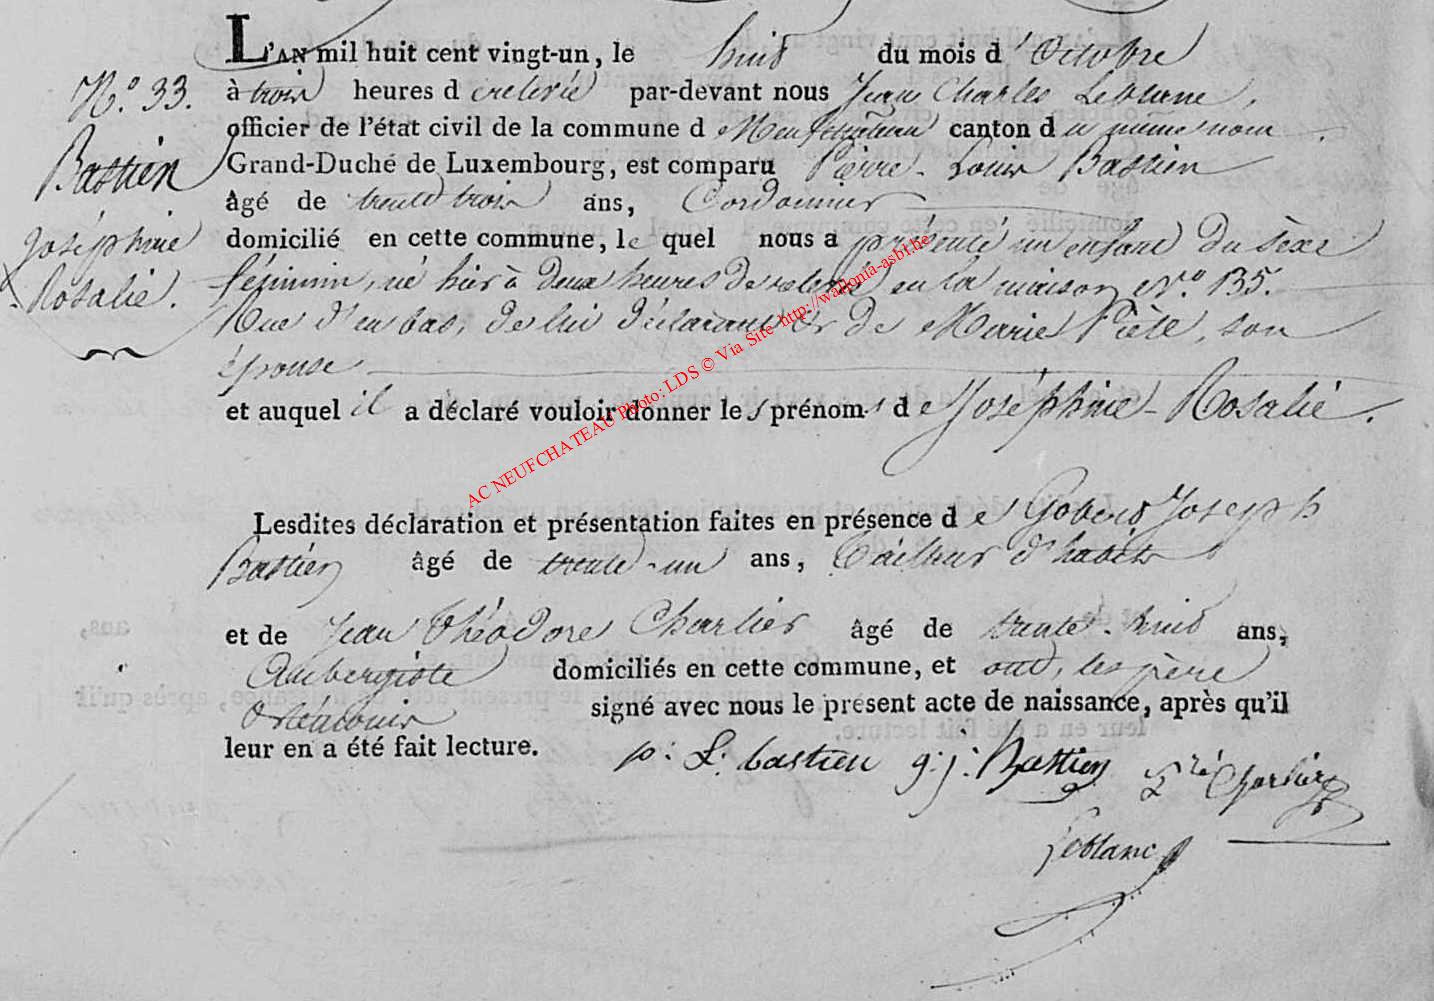 L'AN mil huit cent vingt-un, le huit du mois d'Octobre
N.º 33. à trois heures d relevé par-devant nous Jean Charles Leblanc,
officier de l'état civil de la commune de Neufchateau canton du même nom.
Bastien Grand-Duché de Luxembourg, est comparu Pierre-Louis Bastien
âgé de trente trois ans, Cordonnier
Joséphine domicilié en cette commune, le quel nous a présenté un enfant du sèxe
Rosalie. féminin, né hier à deux heures de relevée en la maison N.º 135.
Rue d'en bas, de lui déclarant et de Marie son
épouse
et auquel il a déclaré vouloir donner les prénoms de Joséphine-Rosalie.
AC NEUFCHATEAU Photo: LDS © Via Site http://wallonia-asbl.be
Lesdites déclaration et présentation faites en présence de Joseph
Bastien âgé de trente-un ans, Tailleur d'habits
et de Jean Théodore Charlier âgé de trente-huit ans,
Aubergiste domiciliés en cette commune, et ont, les père
et témoins signé avec nous le présent acte de naissance, après qu'il
leur en a été fait lecture.
p: L. bastien g: j: Bastien Charlier
Leblanc